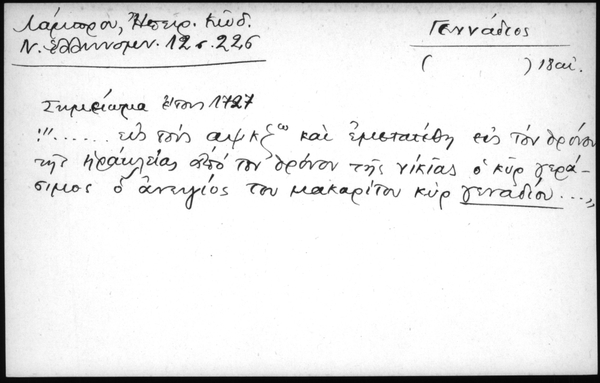 Λάμπρου, Ἠπειρ. Κώδ.
Ν. Ἑλληνομν. 12 σ. 226
Γεννάδιος
( ) 18 αἰ.
Σημείωμα ἔτους 1727
"...... εἰς τοὺς αψκζω καὶ ἐμετατέθη εἰς τὸν θρόνον
τῆς ἡρακλείας ἀπὸ τον θρόνον τῆς νικίας ὁ κὺρ γερά-
σιμος ὁ ἀνεψιὸς του μακαρίτου κὺρ γεναδίου...."